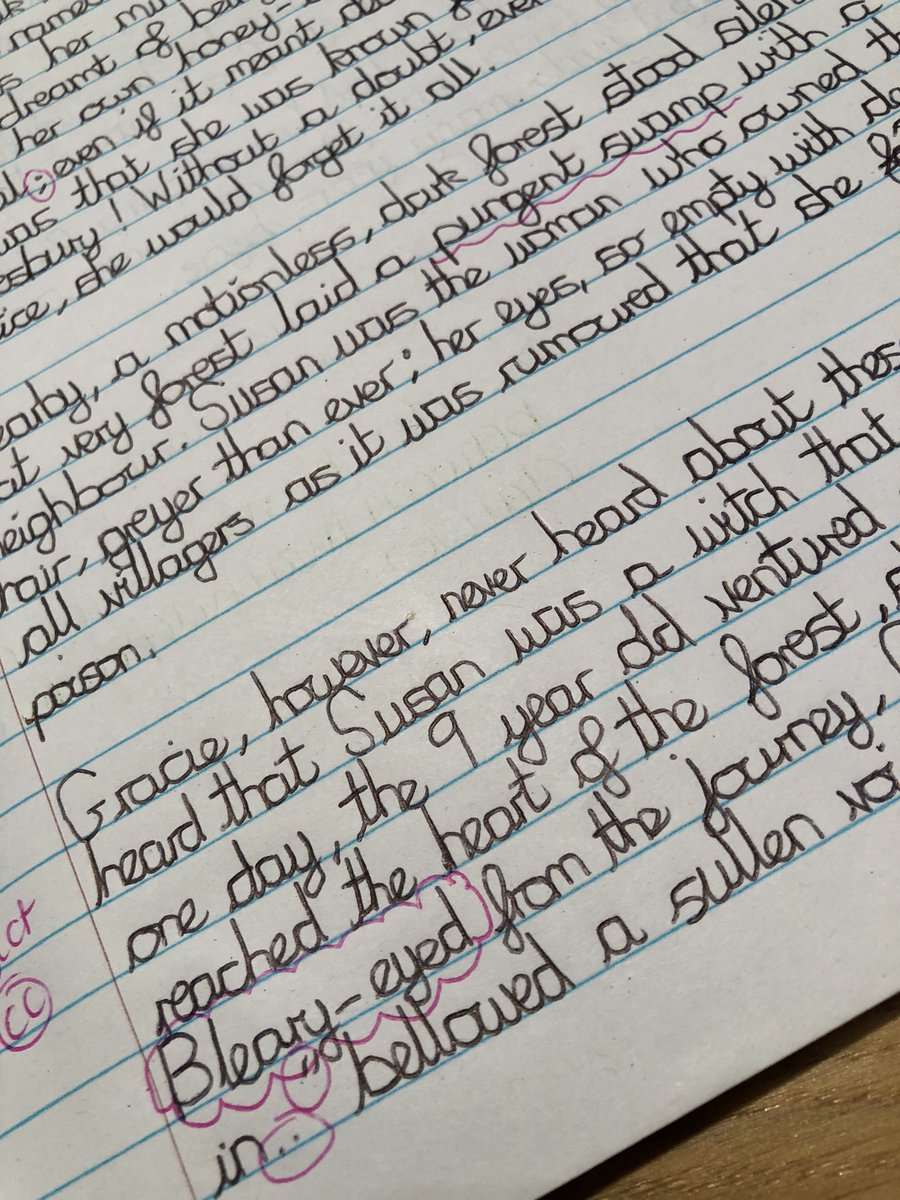 her mu
dreamt of be
her own honey-
even if it meant de
was that she was known
esbury! Without a doubt, eve
ice, she would forget it all.
earby, a motionless, dark forest stood silen
at very forest laid a pungent swamp with a
eighbour. Susan was the woman who owned th
hair, greyer than ever; her eyes, so empty with de
all villagers as it was rumoured that she
poison.
Gracie, however, never heard about thes
heard that Susan was a witch that
one day, the 9 year old ventured
reached the heart of the forest,
Bleary-eyed from the journey,
in.." bellowed a sullen voi
ct
CC